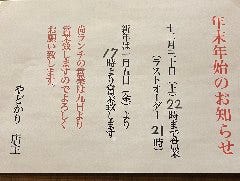 年末年始のお知らせ
十二月三十日(土)22時まで営業
(ラストオーダー21時)
新年は一月五日(金)より
17時より営業致します
尚ランチの営業は九日より
営業致しますのでよろしく
お願い致します。
やどかり 店主